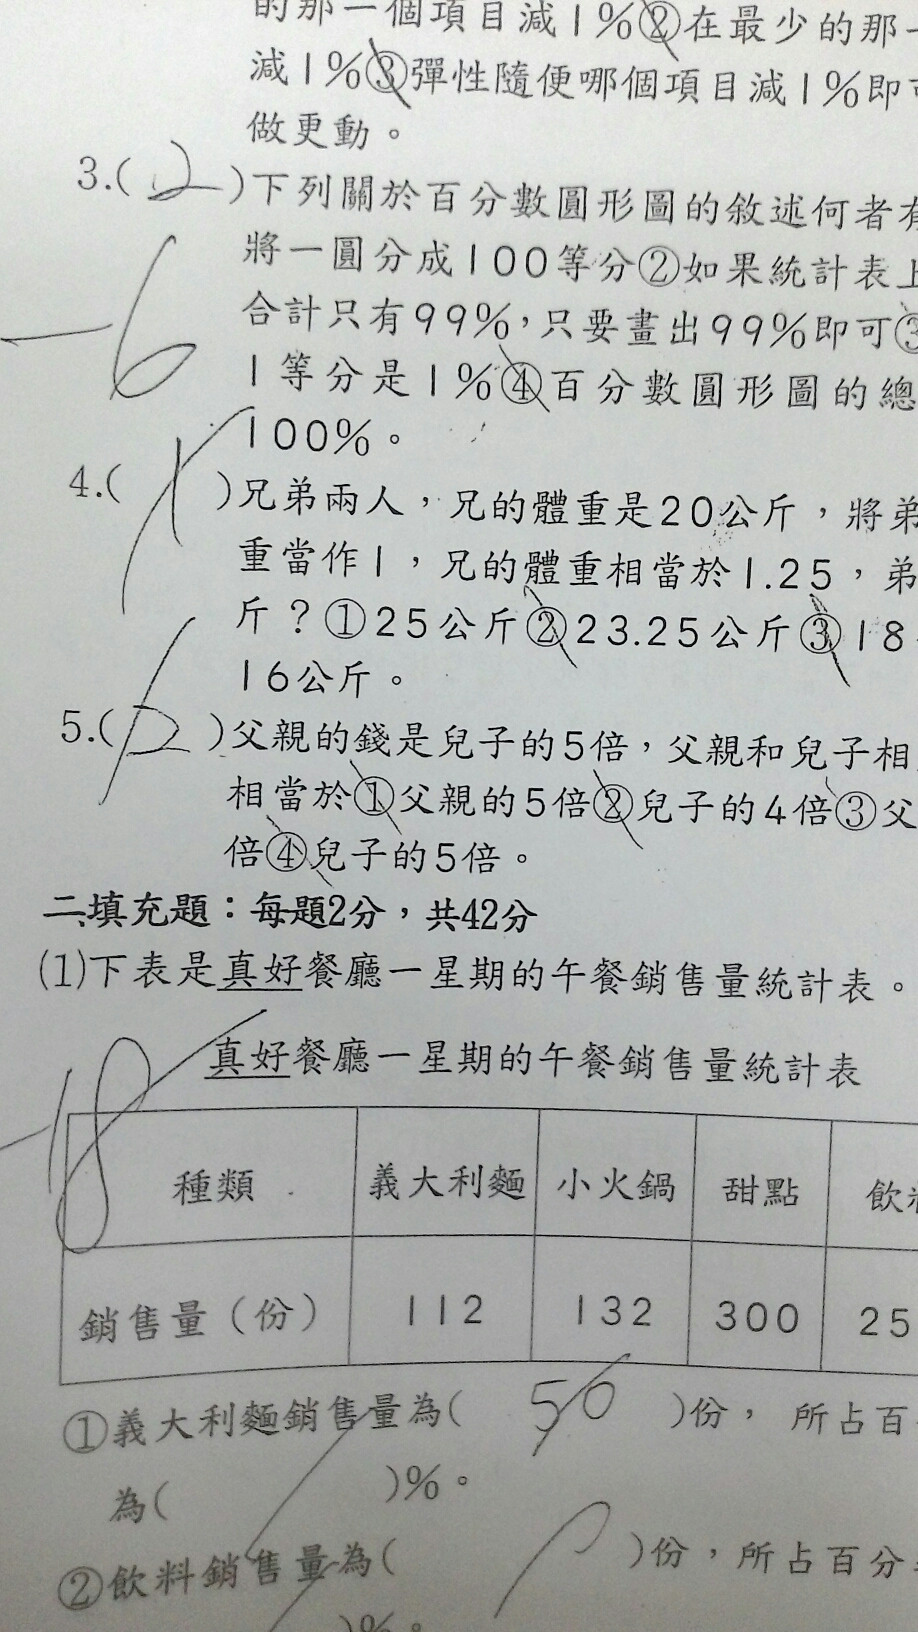 的那一個項目減1%②在最少的那一
減1%③彈性隨便哪個項目減1%即可
做更動。
3.( 2 )下列關於百分數圓形圖的敘述何者有
將一圓分成100等分②如果統計表上
合計只有99%,只要畫出99%即可③
1等分是1%④百分數圓形圖的總
100%。
-6
4.( 1 )兄弟兩人,兄的體重是20公斤,將弟
重當作1,兄的體重相當於1.25,弟
斤?①25公斤②23.25公斤③18
16公斤。
5.( 2 )父親的錢是兒子的5倍,父親和兒子相
相當於①父親的5倍②兒子的4倍③父
倍④兒子的5倍。
二、填充題:每題2分,共42分
(1)下表是真好餐廳一星期的午餐銷售量統計表。
真好餐廳一星期的午餐銷售量統計表
-18
種類 義大利麵 小火鍋 甜點 飲料
銷售量(份) 112 132 300 25
①義大利麵銷售量為( 56 )份, 所占百
為( )%。
②飲料銷售量為( )份,所占百分
)%。